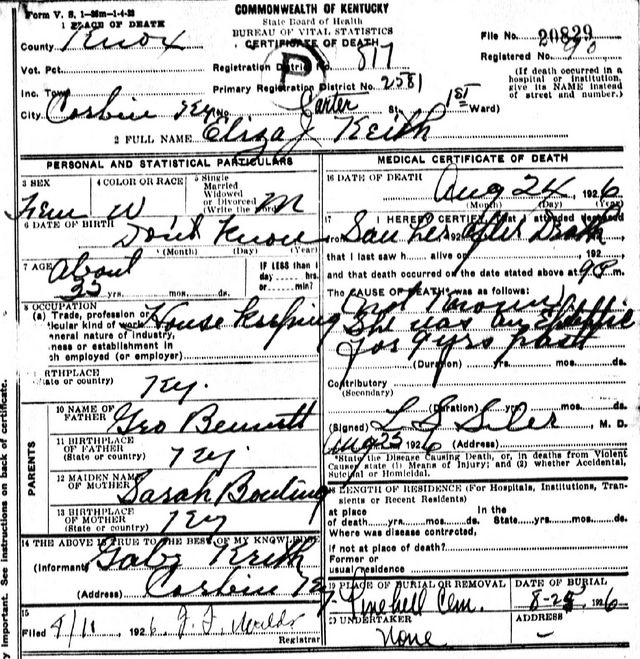 Form V. S. 1-25m-1-4-23
COMMONWEALTH OF KENTUCKY
State Board of Health
BUREAU OF VITAL STATISTICS
CERTIFICATE OF DEATH
1 PLACE OF DEATH
County Knox
File No. 20829
Registered No. 90
Vot. Pct.
Registration District No. 817
Inc. Town
Primary Registration District No. 2581
(If death occurred in a hospital or institution, give its NAME instead of street and number.)
City Corbin Ky No. St. 1st Ward)
2 FULL NAME Eliza J Keith
PERSONAL AND STATISTICAL PARTICULARS
3 SEX Fem
4 COLOR OR RACE W
5 Single Married Widowed or Divorced (Write the word) M
6 DATE OF BIRTH Don't Know
(Month) (Day) (Year)
7 AGE About
yrs. mos. ds.
IF LESS than 1 day hrs. or min.?
8 OCCUPATION
(a) Trade, profession or
ticular kind of work House keeping
eneral nature of industry,
ness or establishment in
ch employed (or employer)
BIRTHPLACE
tate or country) Ky.
PARENTS
10 NAME OF FATHER Geo Bennett
11 BIRTHPLACE OF FATHER (State or country) Ky
12 MAIDEN NAME OF MOTHER Sarah
13 BIRTHPLACE OF MOTHER (State or country) Ky
14 THE ABOVE IS TRUE TO THE BEST OF MY KNOWLEDGE
(Informant) Gaby Keith
(Address) Corbin Ky
15
Filed 9/11 1926 Registrar
MEDICAL CERTIFICATE OF DEATH
16 DATE OF DEATH Aug 24 1926
(Month) (Day) (Year)
17 I HEREBY CERTIFY, that I attended deceased
Saw her after Death
192
that I last saw h alive on 192
and that death occurred on the date stated above at 9 P m.
The CAUSE OF DEATH was as follows:
(not known)
She was an
for 9 yrs past
(Duration) yrs. mos. ds.
Contributory
(Secondary)
(Duration) yrs. mos. ds.
(Signed) L S Siler M. D.
Aug 25 1926 (Address)
*State the Disease Causing Death, or, in deaths from Violent
Causes state (1) Means of Injury; and (2) whether Accidental,
Suicidal or Homicidal.
18 LENGTH OF RESIDENCE (For Hospitals, Institutions, Transients or Recent Residents)
at place of death yrs. mos. ds.
In the State yrs. mos. ds.
Where was disease contracted,
if not at place of death?
Former or usual residence
19 PLACE OF BURIAL OR REMOVAL Pinehill Cem.
DATE OF BURIAL 8-25 1926
20 UNDERTAKER None
ADDRESS -
y important. See instructions on back of certificate.